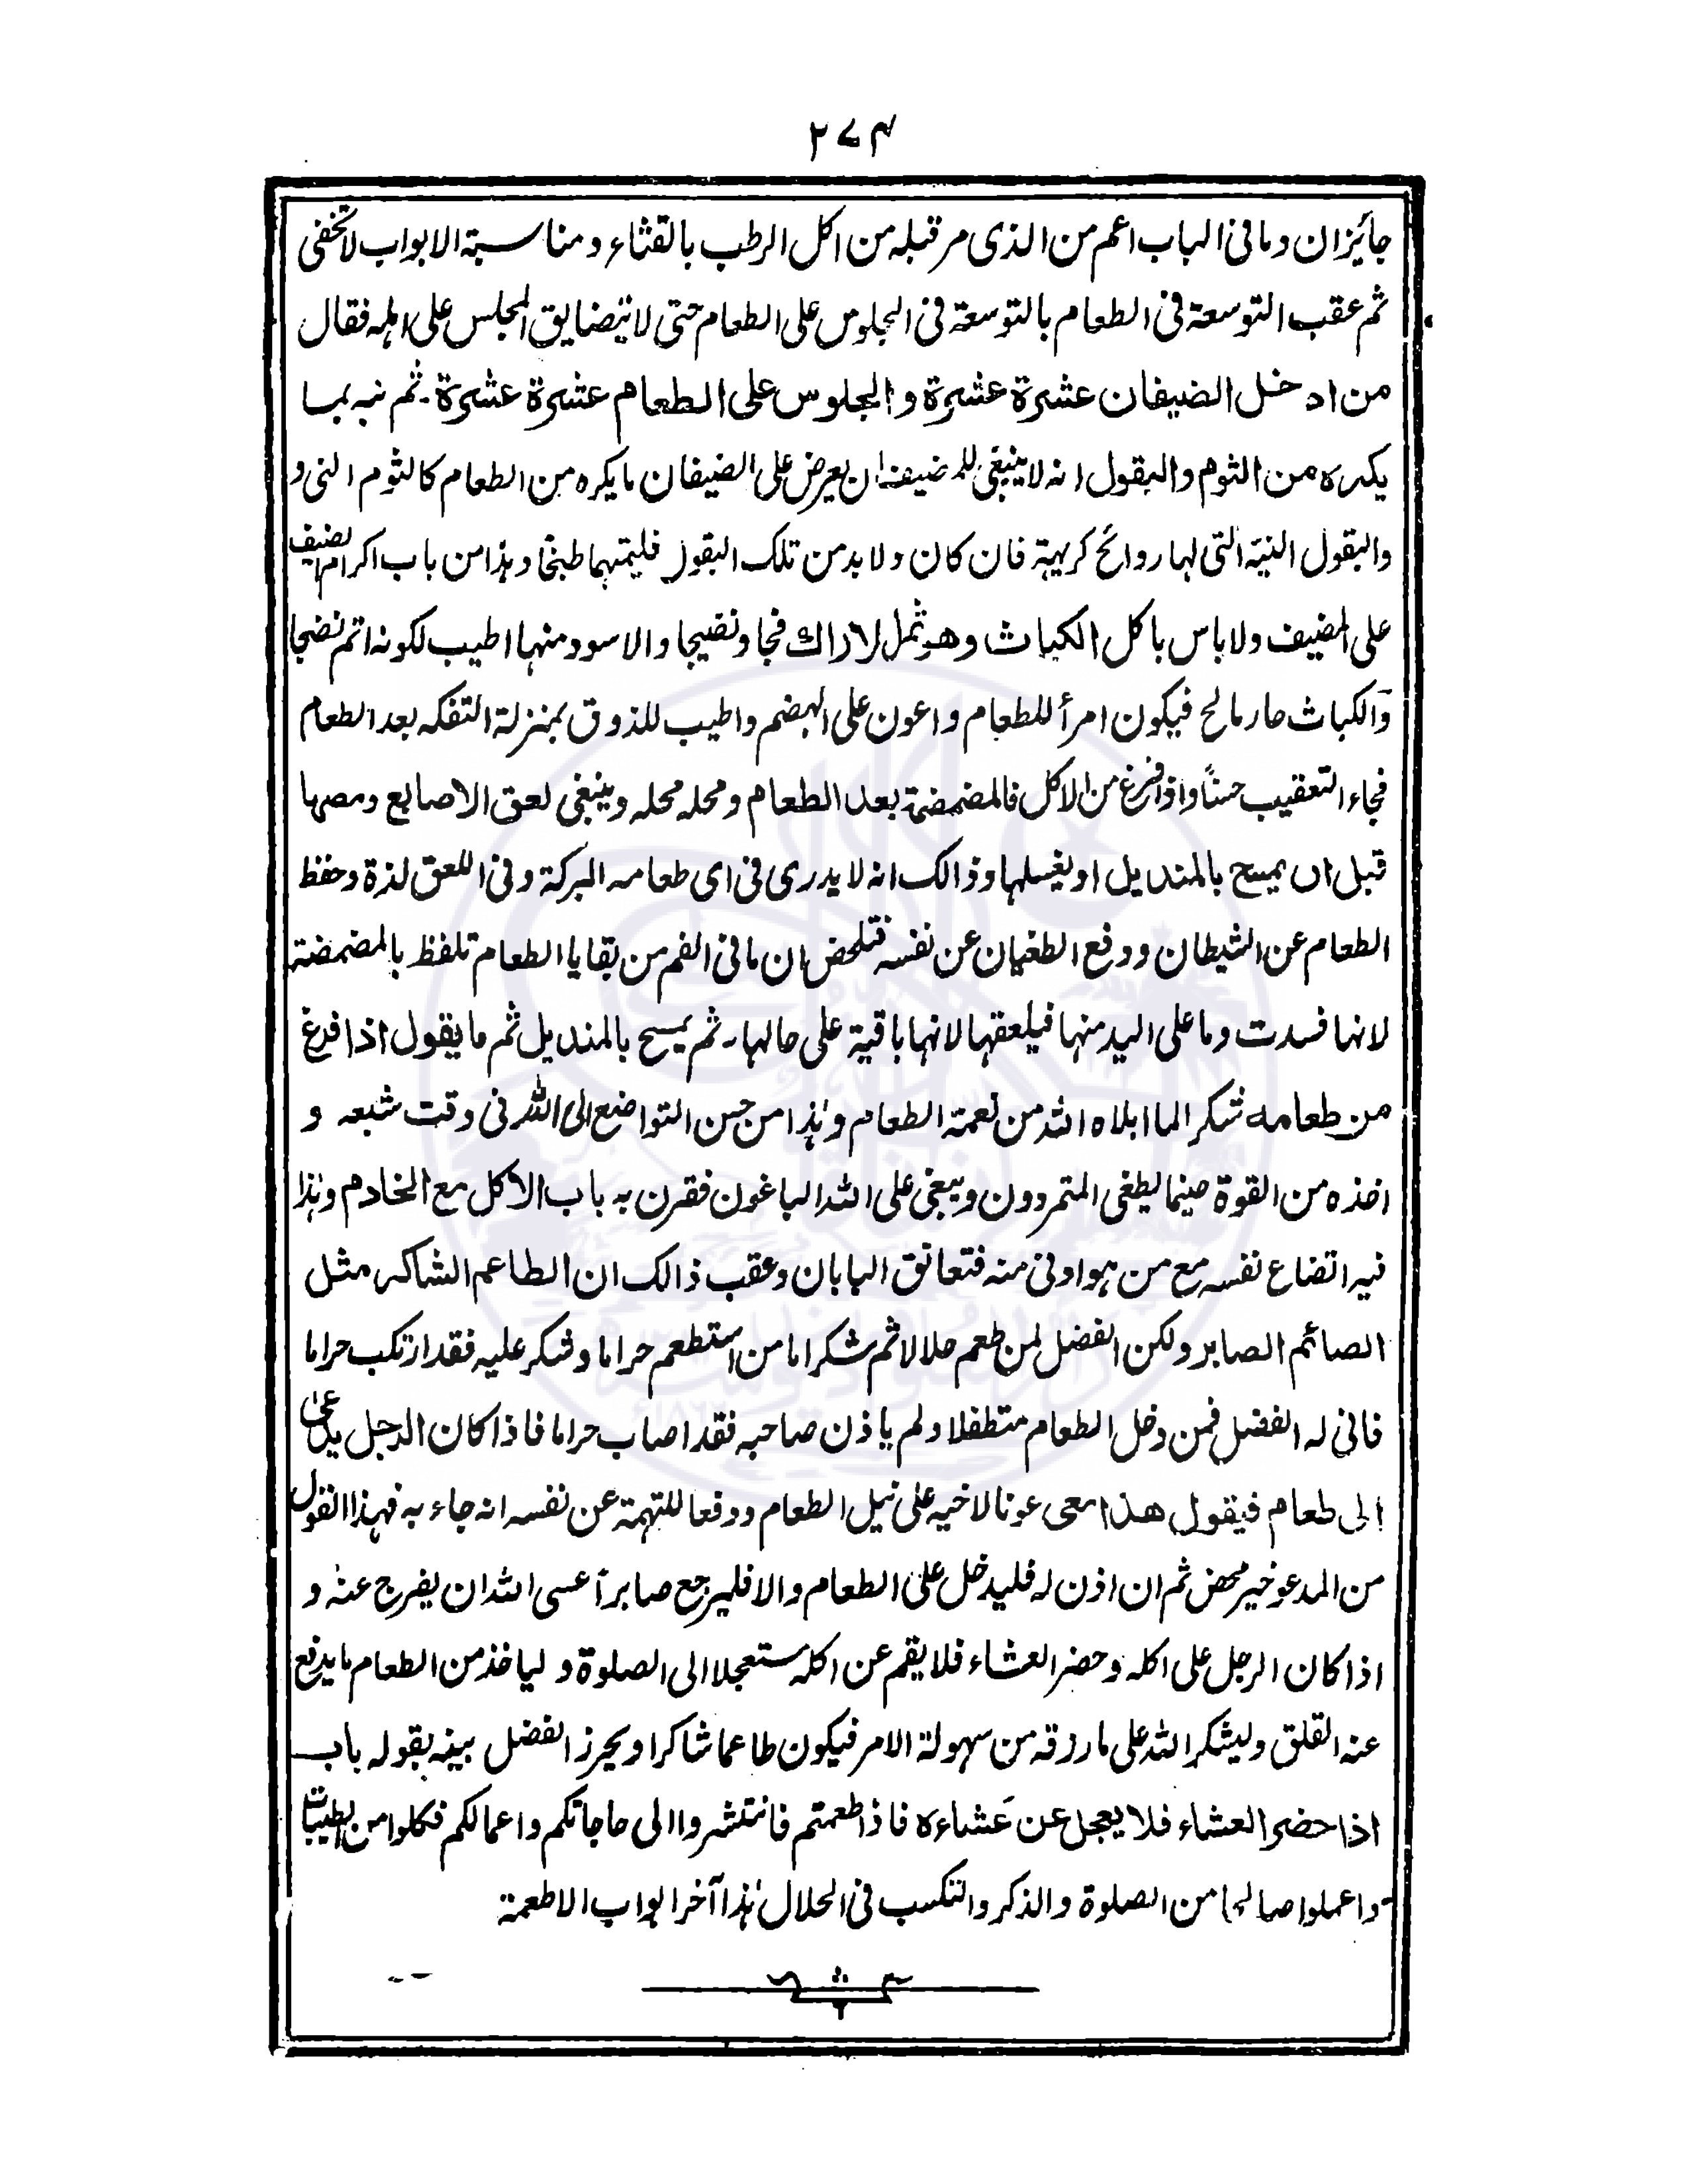 ۲۷۴
جائزان وما فى الباب اعم من الذى مر قبله من اكل الرطب بالقثاء ومناسبة الابواب لا تخفى
ثم عقب التوسعة فى الطعام بالتوسعة فى الجلوس على الطعام حتى لا يتضايق المجلس على اهله فقال
من ادخل الضيفان عشرة عشرة والجلوس على الطعام عشرة عشرة۔ ثم نبه بما
يكره من الثوم والبقول انه لا ينبغى للمضيف ان يعرض على الضيفان ما يكره من الطعام كالثوم النى و
والبقول النيئة التى لها روائح كريهة فان كان ولا بد من تلك البقول فليمتهما طبخًا وهذا من باب اكرام الضيف
على المضيف ولا باس باكل الكباث وهو ثمر الاراك فجا ونضيجا والاسود منها اطيب لكونه اتم نضجا
والكباث حار مالح فيكون امرأ للطعام واعون على الهضم واطيب للذوق بمنزلة التفكه بعد الطعام
فجاء التعقيب حسنًا واذا فرغ من الاكل فالمضمضة بعد الطعام ومحله محله وينبغى لعق الاصابع ومصها
قبل ان يمسح بالمنديل او يغسلها وذالك انه لا يدرى فى اى طعامه البركة وفى اللعق لذة وحفظ
الطعام عن الشيطان ودفع الطغيان عن نفسه فتلخص ان ما فى الفم من بقايا الطعام تلفظ بالمضمضة
لانها فسدت وما على اليد منها فيلعقها لانها باقية على حالها۔ ثم يمسح بالمنديل ثم ما يقول اذا فرغ
من طعامه شكرا لما ابلاه الله من نعمة الطعام وهذا من حسن التواضع الى الله فى وقت شبعه و
اخذه من القوة حينما يطغى المتمردون ويبغى على الله الباغون فقرن به باب الاكل مع الخادم وهذا
فيه اتضاع نفسه مع من هو ادنى منه فتعانق البابان وعقب ذالك ان الطاعم الشاكر مثل
الصائم الصابر ولكن الفضل لمن طعم حلالا ثم شكر اما من استطعم حراما وشكر عليه فقد ارتكب حراما
فانى له الفضل فمن دخل الطعام متطفلا ولم ياذن صاحبه فقد اصاب حراما فاذا كان الرجل يدعى
الى طعام فيقول هذا معى عونا لاخيه على نيل الطعام ودفعا للتهمة عن نفسه انه جاء به فهذا القول
من المدعو خير محض ثم ان اذن له فليدخل على الطعام والا فليرجع صابرًا عسى الله ان يفرج عنه و
اذا كان الرجل على اكله وحضر العشاء فلا يقم عن اكله مستعجلا الى الصلوة ولياخذ من الطعام ما يدفع
عنه القلق وليشكر الله على ما رزقه من سهولة الامر فيكون طاعما شاكرا ويحرز الفضل بينه بقوله باب
اذا حضر العشاء فلا يعجل عن عَشاءه فاذا طعمتم فانتشروا الى حاجاتكم واعمالكم فكلوا من الطيبات
واعملوا صالحا من الصلوة والذكر والتكسب فى الحلال هذا آخر ابواب الاطعمة